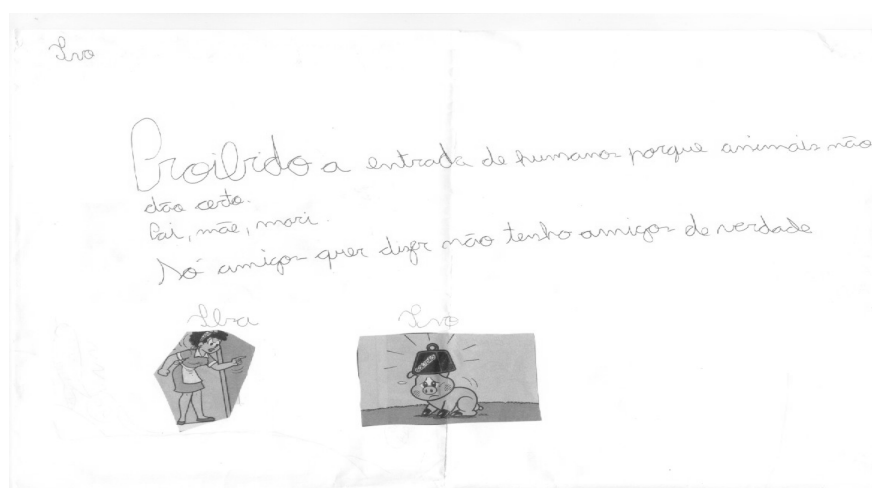 Ivo
Proibido a entrada de humanos porque animais não
dão certo.
Pai, mãe, mari.
Só amigos quer dizer não tenho amigos de verdade
Ivo